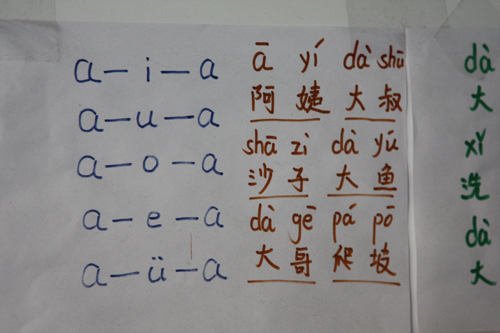 a—i—a
a—u—a
a—o—a
a—e—a
a—ü—a
ā yí dà shū
阿姨 大叔
shā zi dà yú
沙子 大鱼
dà gē pá pō
大哥 爬坡
dà
大
xǐ
洗
dà
大